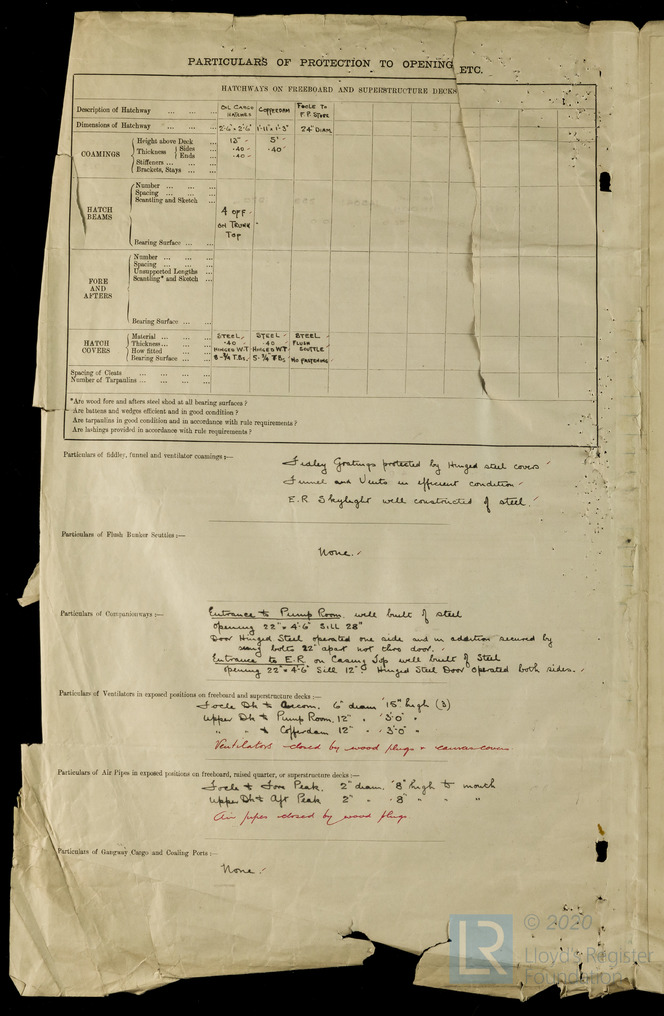 PARTICULARS OF PROTECTION TO OPENING ETC.
HATCHWAYS ON FREEBOARD AND SUPERSTRUCTURE DECKS
Description of Hatchway ... ... ... OIL CARGO HATCHES COFFERDAM FOCLE TO F.P. STORE
Dimensions of Hatchway ... ... ... 2'-6" × 2'-6" 1'-11" × 1'-3" 24" DIAM
COAMINGS
Height above Deck ... 13" 5'
Thickness { Sides ... .40 .40
Ends ... .40
Stiffeners ... ... ...
Brackets, Stays ... ...
HATCH BEAMS
Number ... ... ...
Spacing ... ... ...
Scantling and Sketch ...
4 OFF
ON TRUNK
TOP
Bearing Surface ... ...
FORE AND AFTERS
Number ... ... ...
Spacing ... ... ...
Unsupported Lengths ...
Scantling* and Sketch ...
Bearing Surface ... ...
HATCH COVERS
Material ... ... ... STEEL STEEL STEEL
Thickness ... ... ... .40 .40 FLUSH
How fitted ... ... HINGED W.T. HINGED W.T. SCUTTLE
Bearing Surface ... ... 8-3/4 T.Bs. 5-3/4 T.Bs NO FASTENING
Spacing of Cleats ... ... ...
Number of Tarpaulins ... ... ...
*Are wood fore and afters steel shod at all bearing surfaces?
Are battens and wedges efficient and in good condition?
Are tarpaulins in good condition and in accordance with rule requirements?
Are lashings provided in accordance with rule requirements?
Particulars of fiddley, funnel and ventilator coamings:—
Fidley Gratings protected by Hinged steel covers
Funnel and Vents in efficient condition
E.R. Skylight well constructed of steel.
Particulars of Flush Bunker Scuttles:—
None.
Particulars of Companionways:—
Entrance to Pump Room. well built of steel
opening 22" × 4'-6" Sill 28"
Door Hinged Steel operated one side and in addition secured by
bolts 22" apart not thro door.
Entrance to E.R. on Casing Top well built of Steel
opening 22" × 4'-6" Sill 12". Hinged Steel Door operated both sides.
Particulars of Ventilators in exposed positions on freeboard and superstructure decks:—
Focle Dk to Accom. 6" diam 15" high (3)
Upper Dk to Pump Room. 12" " 3'-0" "
" " to Cofferdam 12" " 3'-0" "
Ventilators closed by wood plugs & canvas covers
Particulars of Air Pipes in exposed positions on freeboard, raised quarter, or superstructure decks:—
Focle to Fore Peak. 2" diam. 8" high to mouth
Upper Dk to Aft Peak 2" " 8" " " "
Air pipes closed by wood plugs
Particulars of Gangway Cargo and Coaling Ports:—
None.
LR
© 2020
Lloyd's Register
Foundation